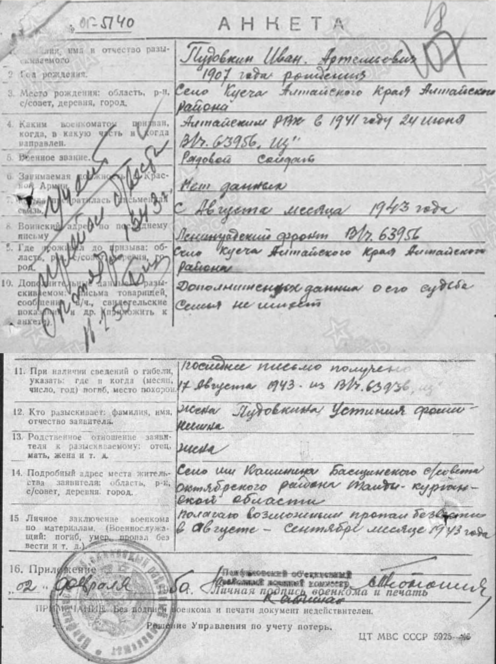 ОГ-5740
АНКЕТА
1. Фамилия, имя и отчество разыскиваемого
Пудовкин Иван Артемович
2. Год рождения.
1907 года рождения
3. Место рождения: область, р-н, с/совет, деревня, город.
Село Куяча Алтайского Края Алтайского
района
4. Каким военкоматом призван, когда, в какую часть и когда направлен.
Алтайским РВК в 1941 году 24 июня
В/ч. 63956
5. Военное звание.
Рядовой солдат
6. Занимаемая должность в Красной Армии.
Нет данных
связь.
С Августа месяца 1943 года
8. Воинский адрес по последнему письму
Ленинградский фронт В/ч. 63956
9. Где проживал до призыва: область, р-н,
Село Куяча Алтайского Края Алтайского
Района
10. Дополнительные данные о разыскиваемом (письма товарищей, сообщения в/ч, свидетельские показания и др. приложить к анкете).
Дополнительных данных о его судьбе
Семья не имеет
11. При наличии сведений о гибели, указать: где и когда (месяц, число, год) погиб, место похорон.
последнее письмо получено
17 Августа 1943
12. Кто разыскивает: фамилия, имя, отчество заявителя.
жена Пудовкина Устиния
13. Родственное отношение заявителя к разыскиваемому: отец, мать, жена и т. д.
жена
14. Подробный адрес места жительства заявителя: область, р-н, с/совет, деревня, город.
Село им Калинина с/совета
октябрьского района Талды-курган-
ской области
15 Личное заключение военкома по материалам. (Военнослужащий: погиб, умер, пропал без вести и т. д.).
полагаю возможным пропал без вести
в августе – Сентябре месяце 1943 года
16. Приложение
02 февраля
Личная подпись военкома и печать
ПРИМЕЧАНИЕ. Без подписи военкома и печати документ недействителен.
Решение Управления по учету потерь.
ЦТ МВС СССР 5925